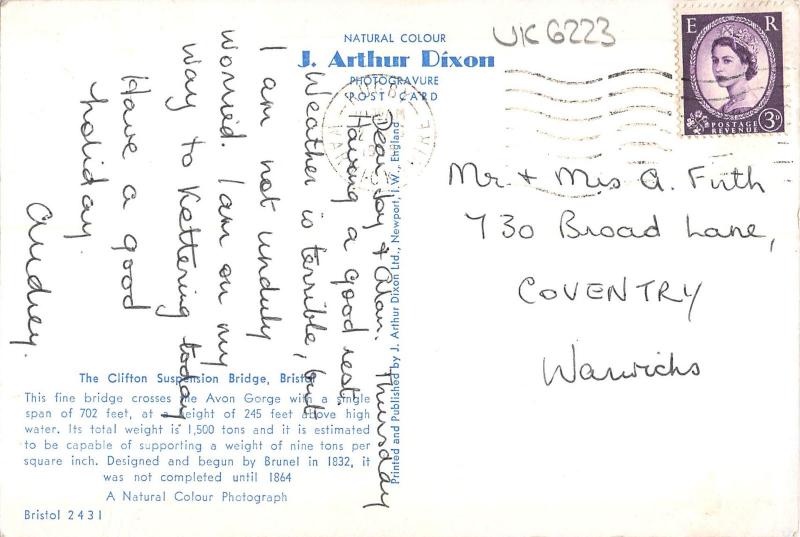 UK6223
NATURAL COLOUR
J. Arthur Dixon
PHOTOGRAVURE
POST CARD
E R
POSTAGE
REVENUE
3D
Thursday
Dear Joy & Alan.
Having a good rest.
Weather is terrible, but
I am not unduly
worried. I am on my
way to Kettering today
Have a good
holiday.
Audrey.
Printed and Published by J. Arthur Dixon Ltd., Newport, I.W., England.
Mr + Mrs A. Firth
730 Broad Lane,
COVENTRY
Warwicks
The Clifton Suspension Bridge, Bristol
This fine bridge crosses the Avon Gorge with a single
span of 702 feet, at a height of 245 feet above high
water. Its total weight is 1,500 tons and it is estimated
to be capable of supporting a weight of nine tons per
square inch. Designed and begun by Brunel in 1832, it
was not completed until 1864
A Natural Colour Photograph
Bristol 2431